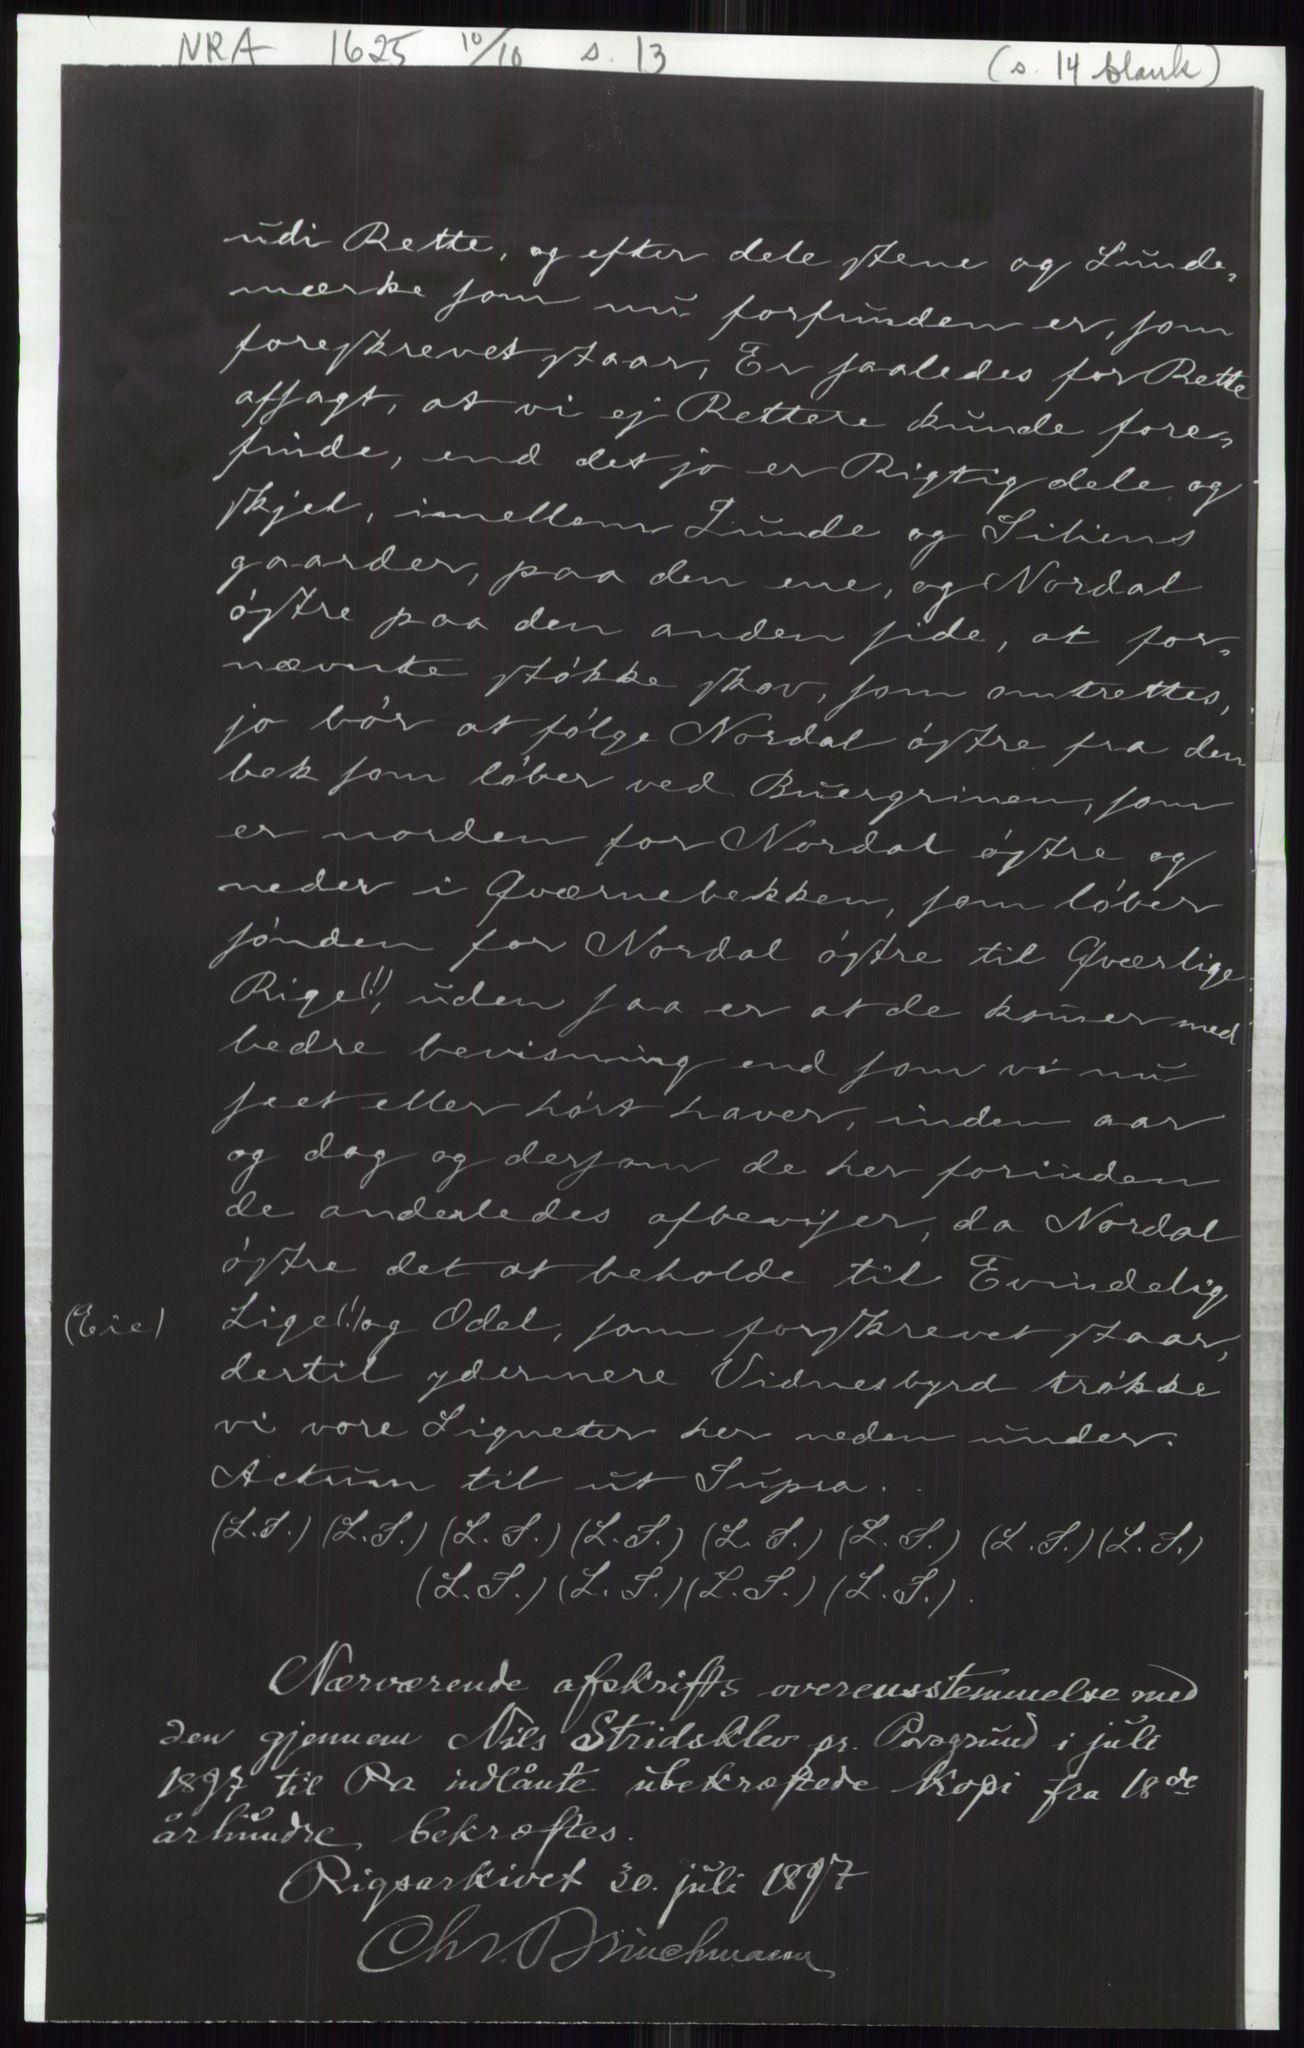 NRA 1625 10/10 s. 13 (s. 14 blank)
udi Rette, og efter dele stene og Lunde,
merke som nu forfunden er, som
foreskrevet staar, Er saaledes for Rette
afsagt, at vi ej Rettere kunde fore,
finde, end det jo er Rigtig dele og
skjel, imellem Lunde og Siliens
gaarder, paa den ene, og Nordal
östre paa den anden side, at for,
nævnte stökke skov, som omtrettes,
jo bör at fölge Nordal östre fra den
bek som löber ved Buergrinen, som
er norden for Nordal östre og
neder i Qværnebekken, som löber
sönden for Nordal östre til Qværlige
Rige(!), uden saa er at de kom̄er med
bedre bevisning end som vi nu
seet eller hört haver, inden aar
og dag og dersom de her forinden
de anderledes afbeviser, da Nordal
östre det at beholde til Evindelig
(Eie) Lige(!) og Odel, som forskrevet staar,
dertil ydermere Vidnesbyrd trökke
vi vore Signeter her neden under.
Actum til ut Supra.
(L.S.) (L.S.) (L.S.) (L.S.) (L.S.) (L.S.) (L.S.) (L.S.)
(L.S.) (L.S.) (L.S.) (L.S.).
Nærværende afskrifts overensstemmelse med
den gjennem Nils Stridsklev pr. Porsgrund i juli
1897 til Ra indlånte ubekræftede kopi fra 18de
århundre bekræftes.
Rigsarkivet 30. juli 1897
Chr. Brinchmann